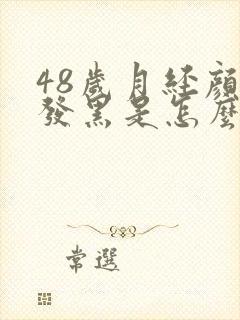 48歲月經顏
發黑是怎麼
常選